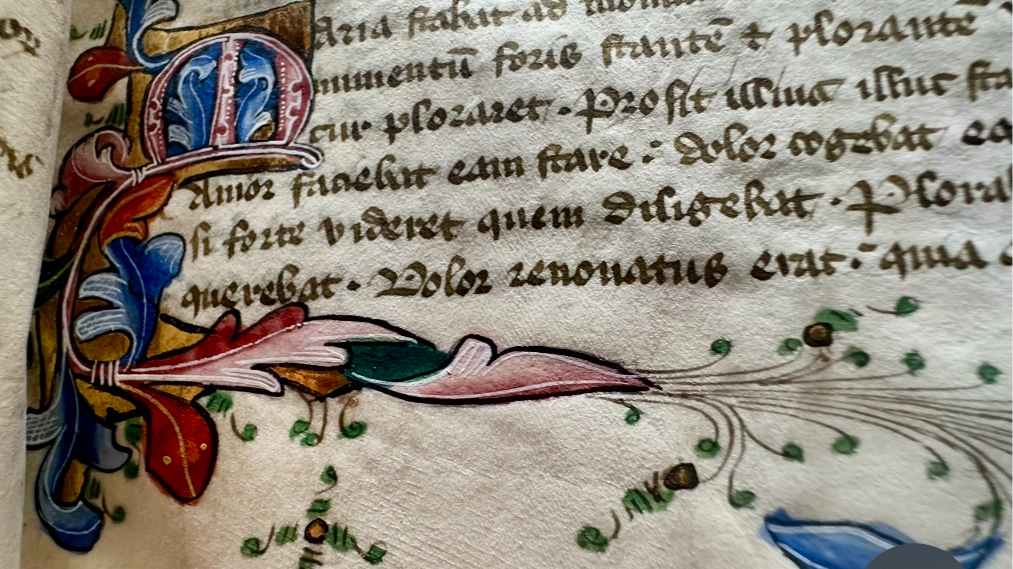 Maria stabat ad monu
numentū foris stantē ⁊ plorantē
tur ploraret · Prosit illius illuc sta
Amor faciebat eam stare : dolor cogebat ea
si forte videret quem diligebat · Plora
querebat · Dolor renouatus erat : quia